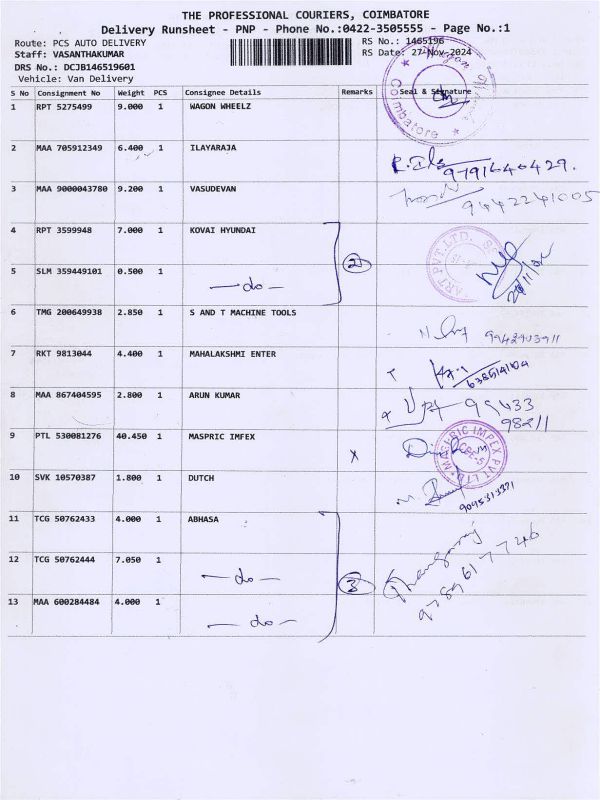 THE PROFESSIONAL COURIERS, COIMBATORE
Delivery Runsheet - PNP - Phone No.:0422-3505555 - Page No.:1
Route: PCS AUTO DELIVERY
RS No.: 1465196
Staff: VASANTHAKUMAR
RS Date: 27-Nov-2024
DRS No.: DCJB146519601
Vehicle: Van Delivery
S No Consignment No Weight PCS Consignee Details Remarks Seal & Signature
1 RPT 5275499 9.000 1 WAGON WHEELZ
Coimbatore
2 MAA 705912349 6.400 1 ILAYARAJA
9791640429.
3 MAA 9000043780 9.200 1 VASUDEVAN
9442241005
4 RPT 3599948 7.000 1 KOVAI HYUNDAI
2
5 SLM 359449101 0.500 1 -do-
6 TMG 200649938 2.850 1 S AND T MACHINE TOOLS
7 RKT 9813044 4.400 1 MAHALAKSHMI ENTER
8 MAA 867404595 2.800 1 ARUN KUMAR
99433
98211
9 PTL 530081276 40.450 1 MASPRIC IMFEX
X
10 SVK 10570387 1.800 1 DUTCH
11 TCG 50762433 4.000 1 ABHASA
12 TCG 50762444 7.050 1 -do-
3
9789617746
13 MAA 600284484 4.000 1 -do-